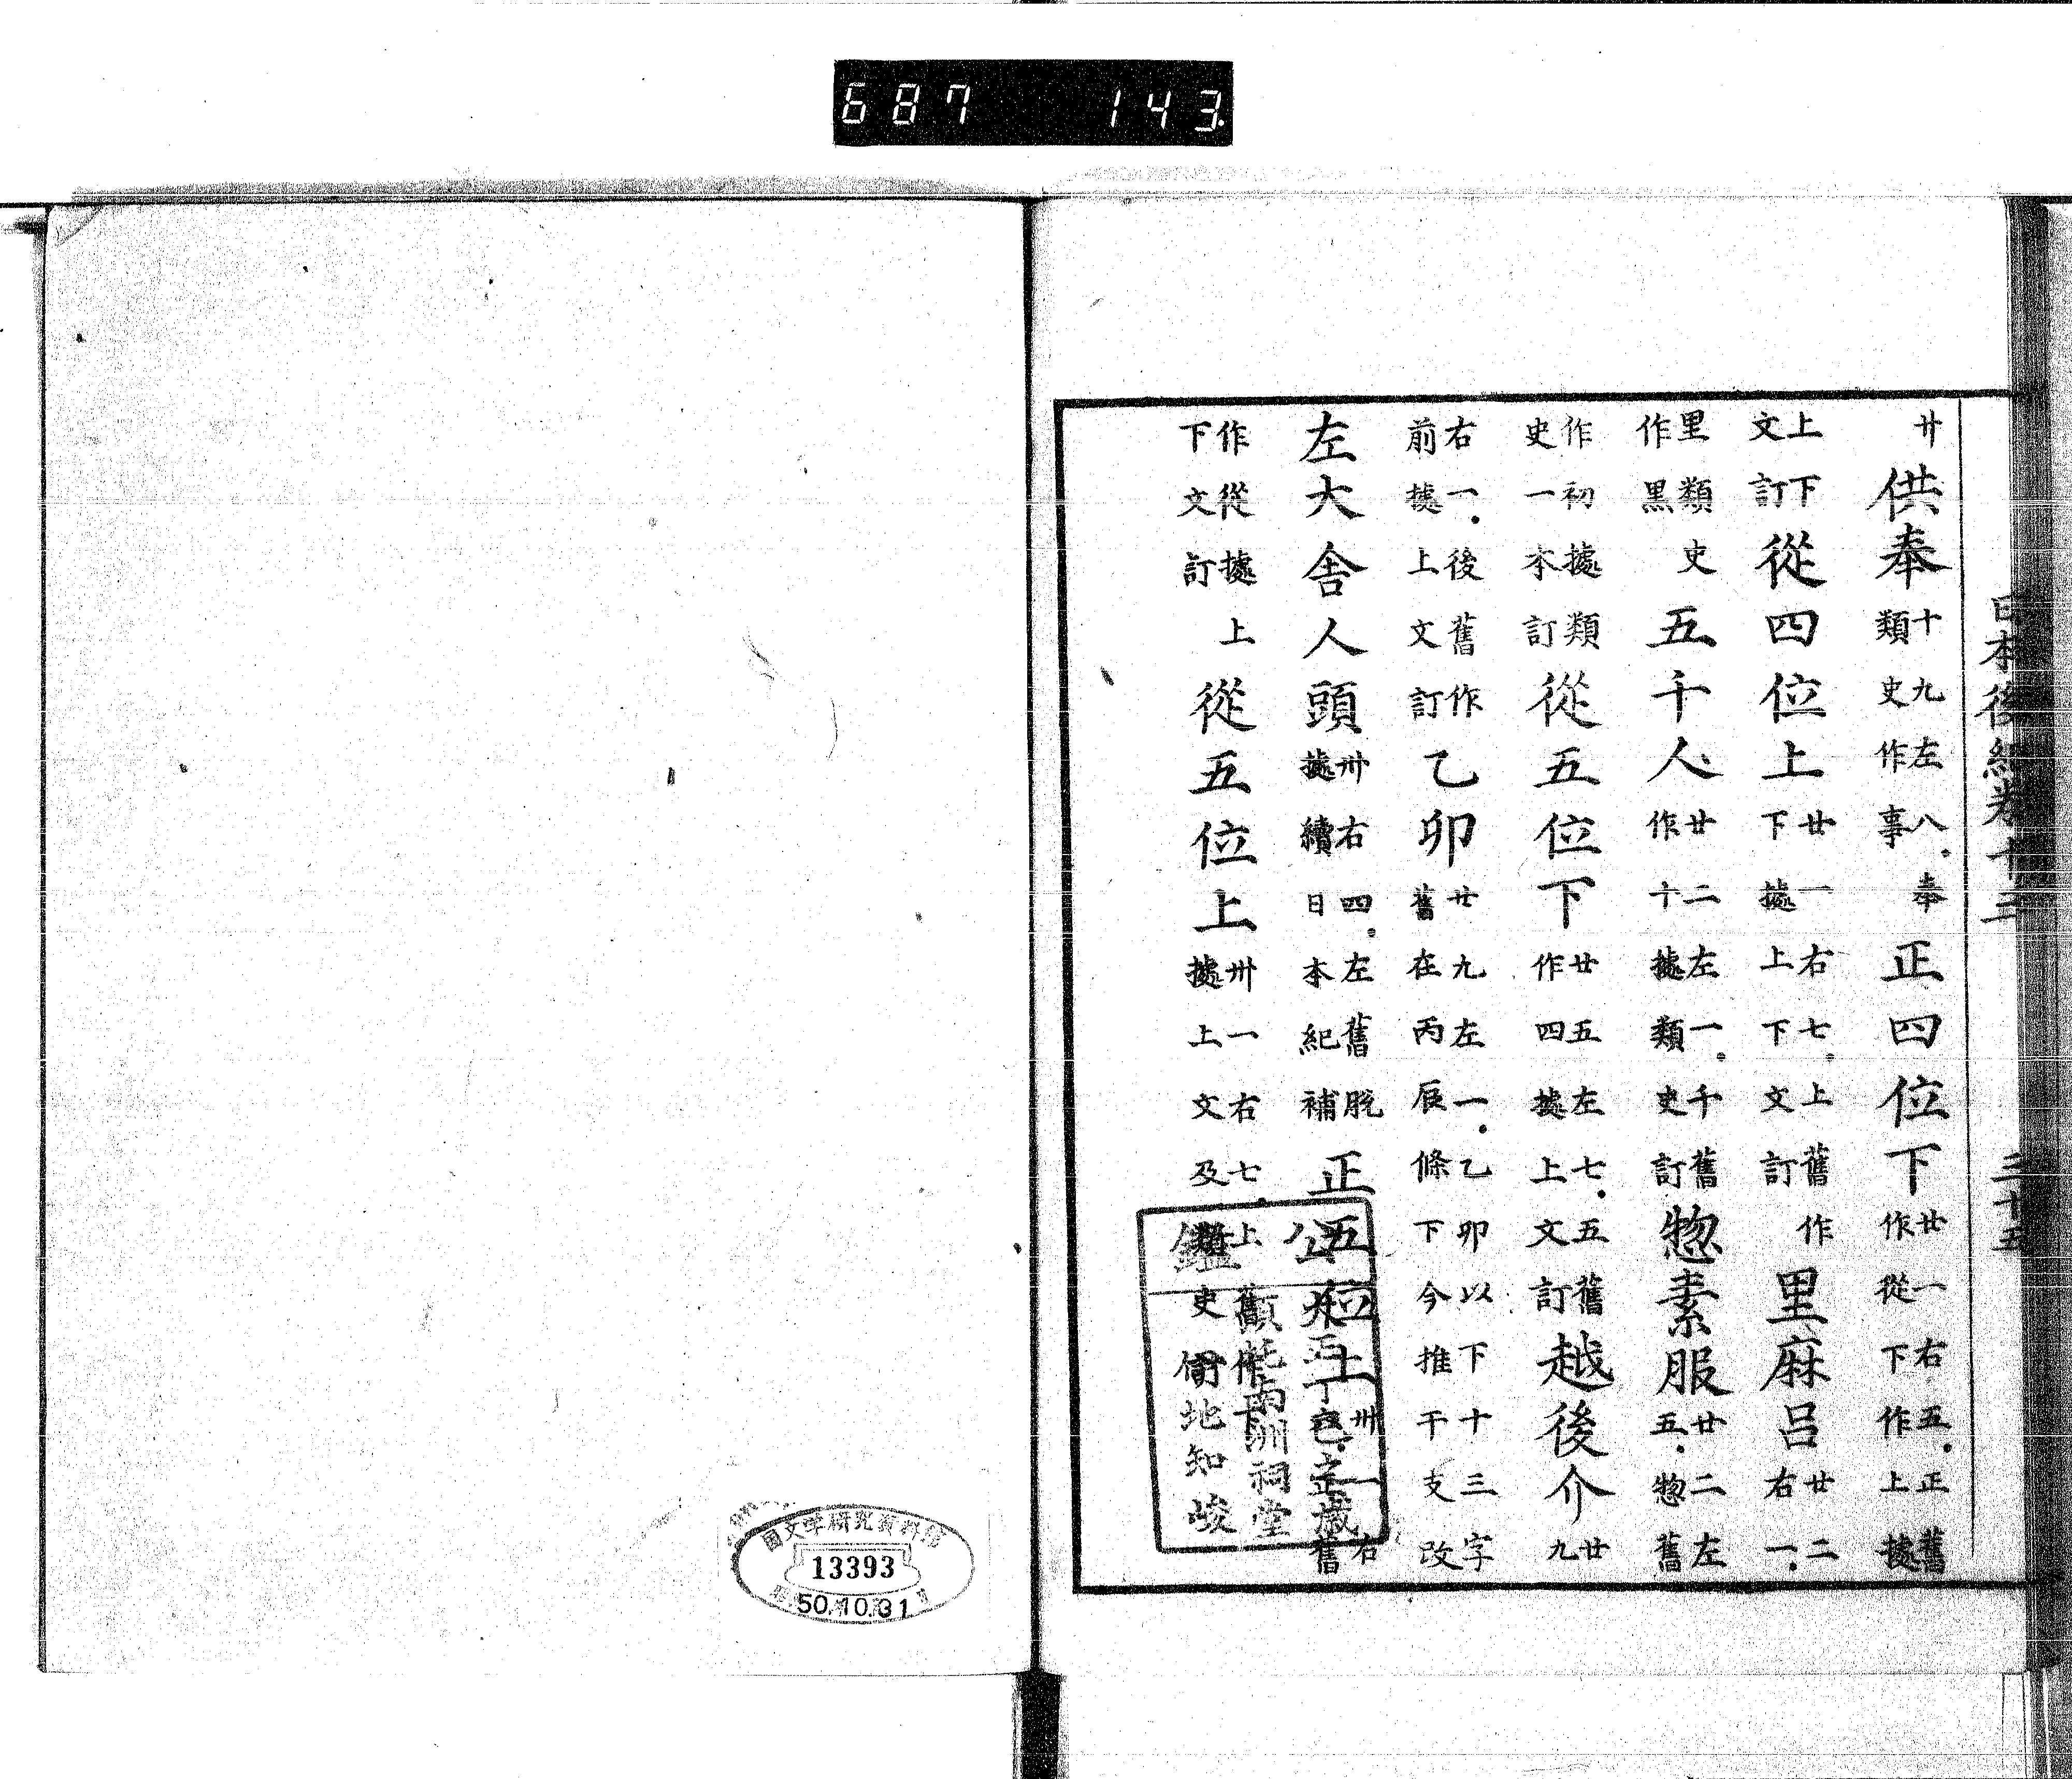 687 143
日本後紀卷十三 三十五
廿供奉十九左八。奉類史作事正四位下廿一右五。正舊作從下作上據
上下文訂從四位上廿一右七。上舊作下據上下文訂里麻呂廿二右一。
里類史作黑五千人廿二左一。千舊作十據類史訂惣素服廿二左五。惣舊
作初據類史一本訂從五位下廿五左七。五舊作四據上文訂越後介廿九
右一。後舊作前據上文訂乙卯廿九左一。乙卯以下十三字舊在丙辰條下今推干支改
左大舍人頭卅右四。左舊脫據續日本紀補正五位上卅一右舊
作從據上下文訂從五位上卅一右七。上舊作下據上文及類史訂
大正丁巳之歲
南洲祠堂
國文学研究資料館
13393
50.10.31